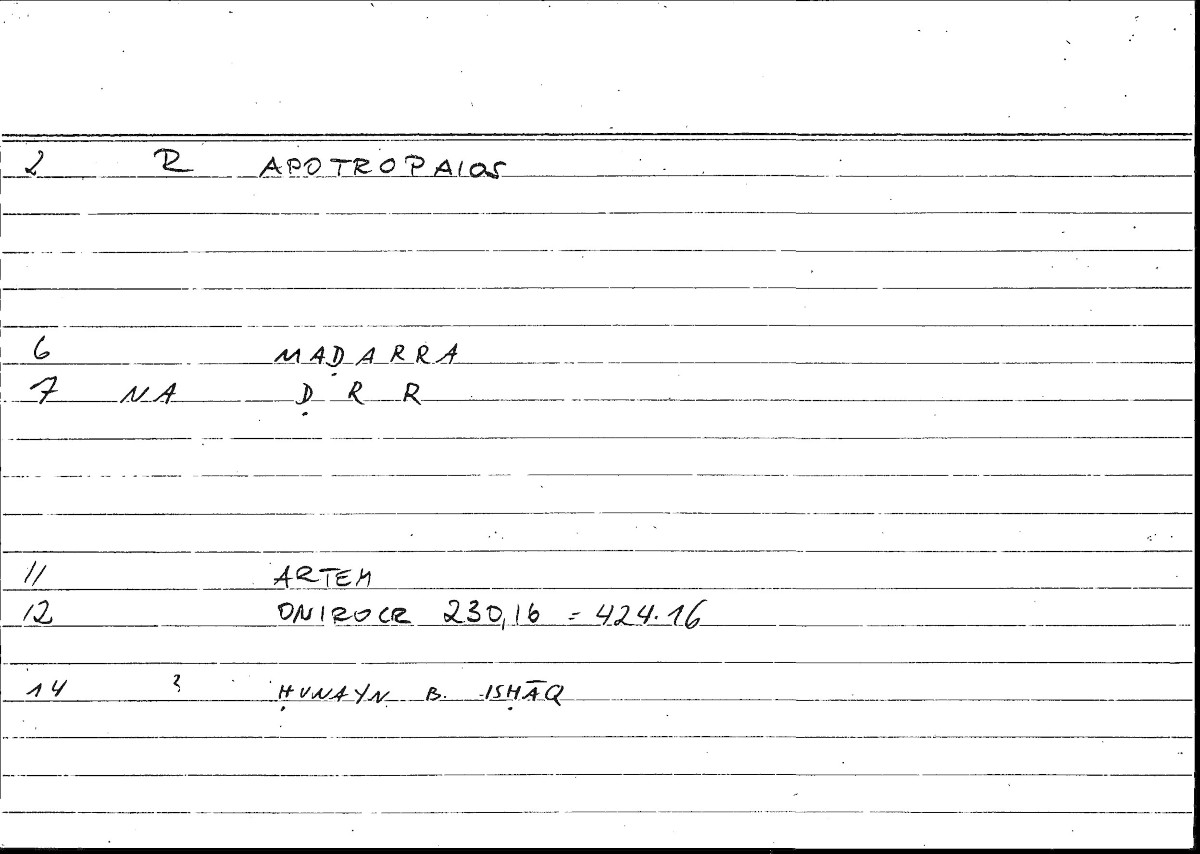 2 R APOTROPAIOS
6 MAḌARRA
7 NA Ḍ R R
11 ARTEM
12 ONIROCR 230,16 = 424.16
14 ? ḤUNAYN B. ISḤĀQ